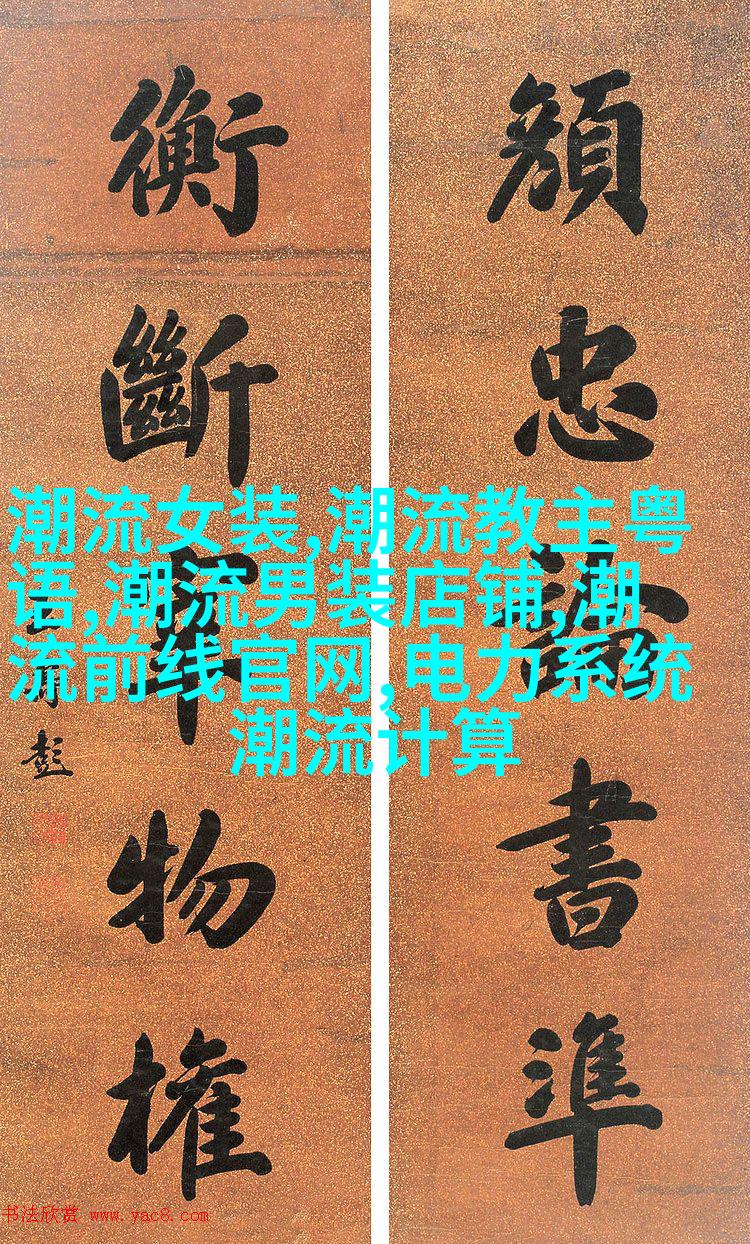 忠
書
準
衡
斷
物
權
潮流女装,潮流教主粤
语,潮流男装店铺,潮
流前线官网,电力系统
潮流计算
书法欣赏 www.yac8.com